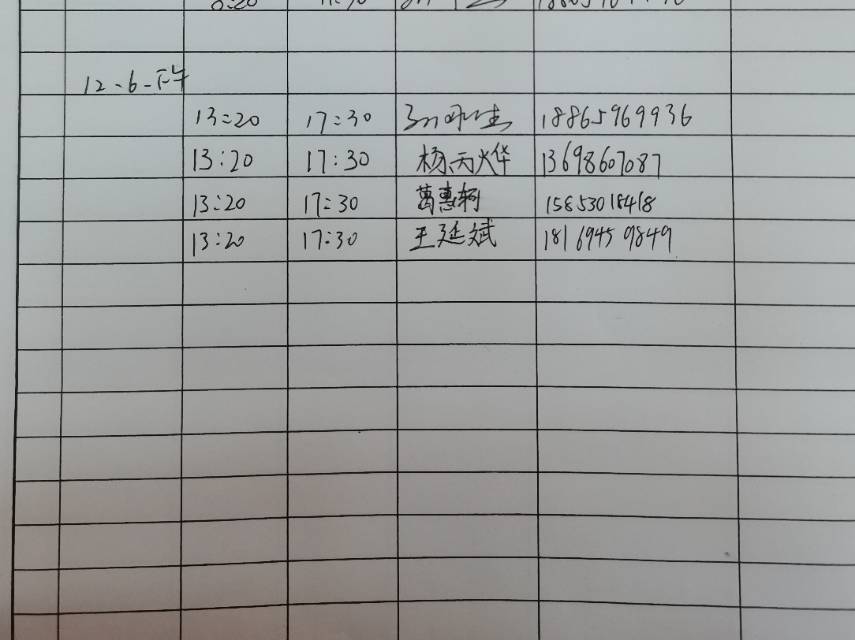 12-6-下午
13:20 17:30 18865969936
13:20 17:30 杨丙烨 13698607087
13:20 17:30 葛惠轲 15853018418
13:20 17:30 王延斌 18169459849